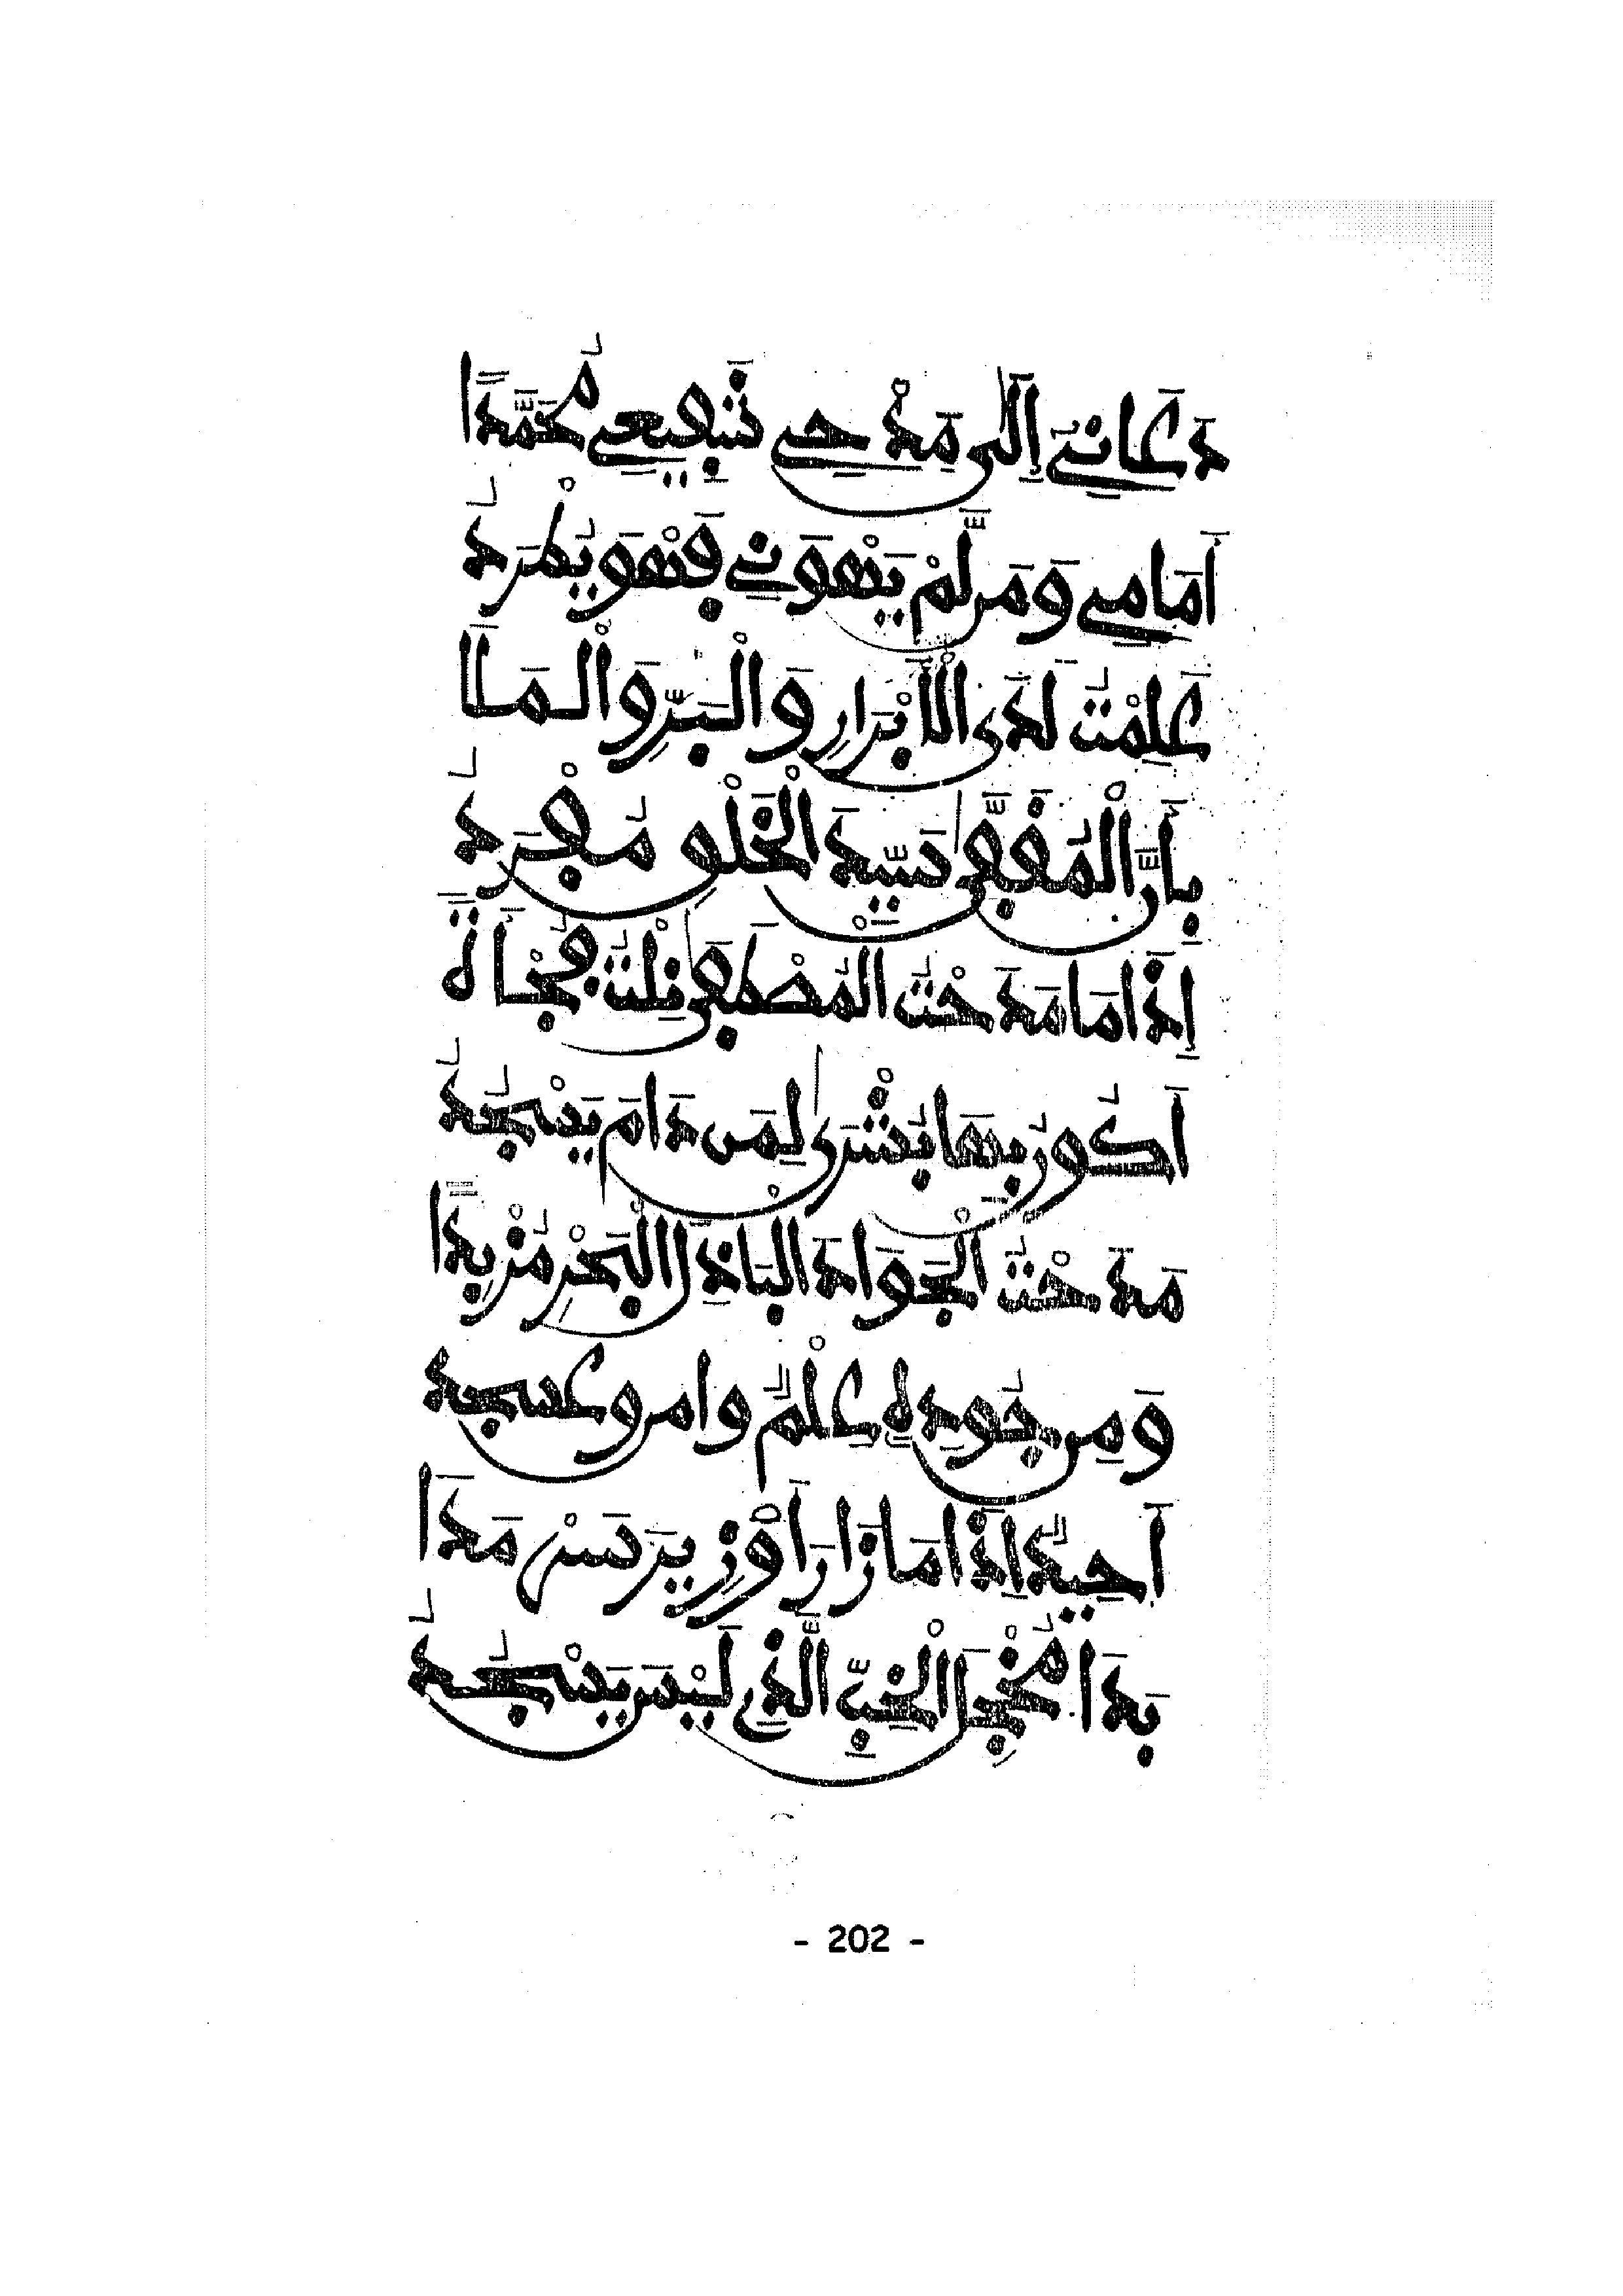 دَعَانِي إِلَى مَدْحِي شَفِيعِي مُحَمَّدًا
أَمَامِي وَمَن لَّمْ يَهْوَنِي فَهْوَ يُطْرَدُ
عَلِمْتُ لَدَى الْأَبْرَارِ وَالْبَرِّ وَالْمَلَا
بِأَنَّ الْمُقَفَّى سَيِّدَ الْخَلْقِ مُفْرَدُ
إِذَا مَا مَدَحْتُ الْمُصْطَفَى قُلْتُ فُجْأَةً
أَكُورُ بِهَا بُشْرَى لِمَن دَامَ يَسْجُدُ
مَدَحْتُ الْجَوَادَ الْبَاذِلَ الْبَحْرَ مُزْبِدًا
وَمِن جُودِهِ عِلْمٌ وَامن وعسجد
أَحِيدٌ إِذَا مَا زَارَ أَوْزِيرَ سَرْمَدَا
بَدَا مُخْجِلَ الْخِبِّ الَّذِي لَيْسَ يَسْجُدُ
- 202 -